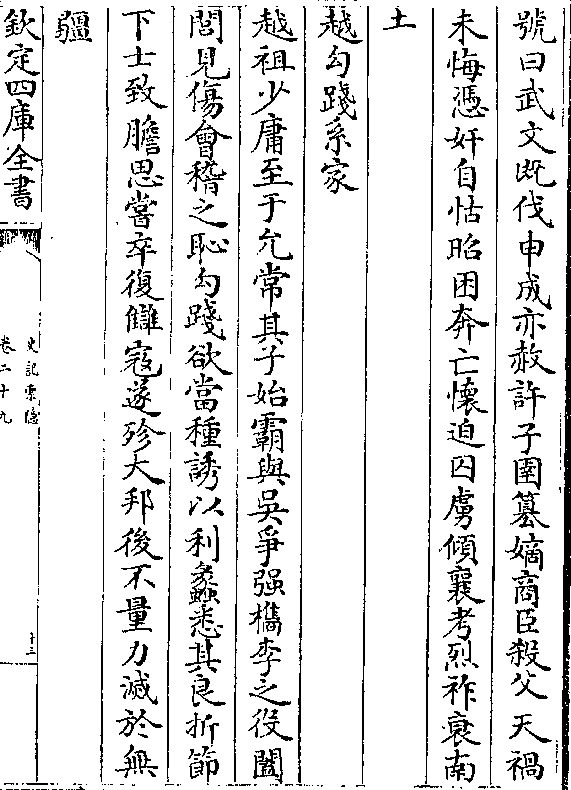 號曰武文既伐申成亦赦許子圉簒嫡商臣殺父天禍
未悔憑奸自怙昭困奔亡懷迫囚虜傾襄考烈祚衰南
土
越勾踐系家
越祖少康至于允常其子始霸與吳爭强檇李之役闔
閭見傷會稽之恥勾踐欲當種誘以利蠡悉其良折節
下士致膽思嘗卒復讎寇遂殄大邦後不量力滅於無
疆
欽定四庫全書
史記索隱
卷二十九
十三